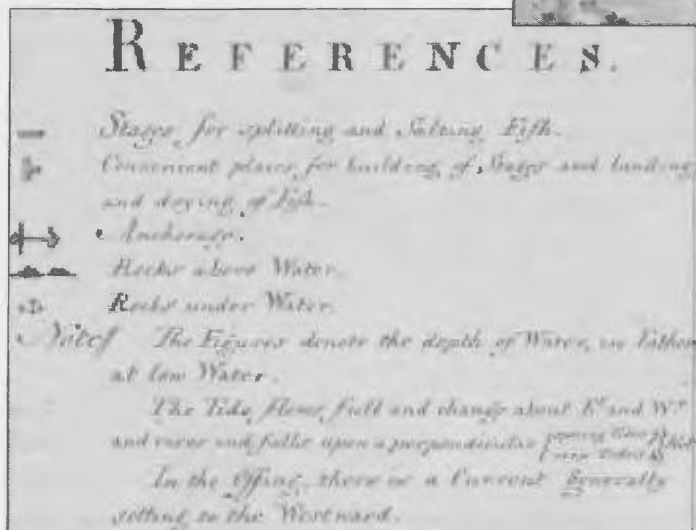 REFERENCES.
Stages for splitting and Salting Fish.
Convenient places for building of Stages and landing
and drying of Fish.
Anchorage.
Rocks above Water.
Rocks under Water.
Notes The Figures denote the depth of Water, in Fathom
at low Water.
The Tide flows full and change about E. and W.
and rises and falls upon a perpendicular
In the Offing, there is a Current Generally
setting to the Westward.